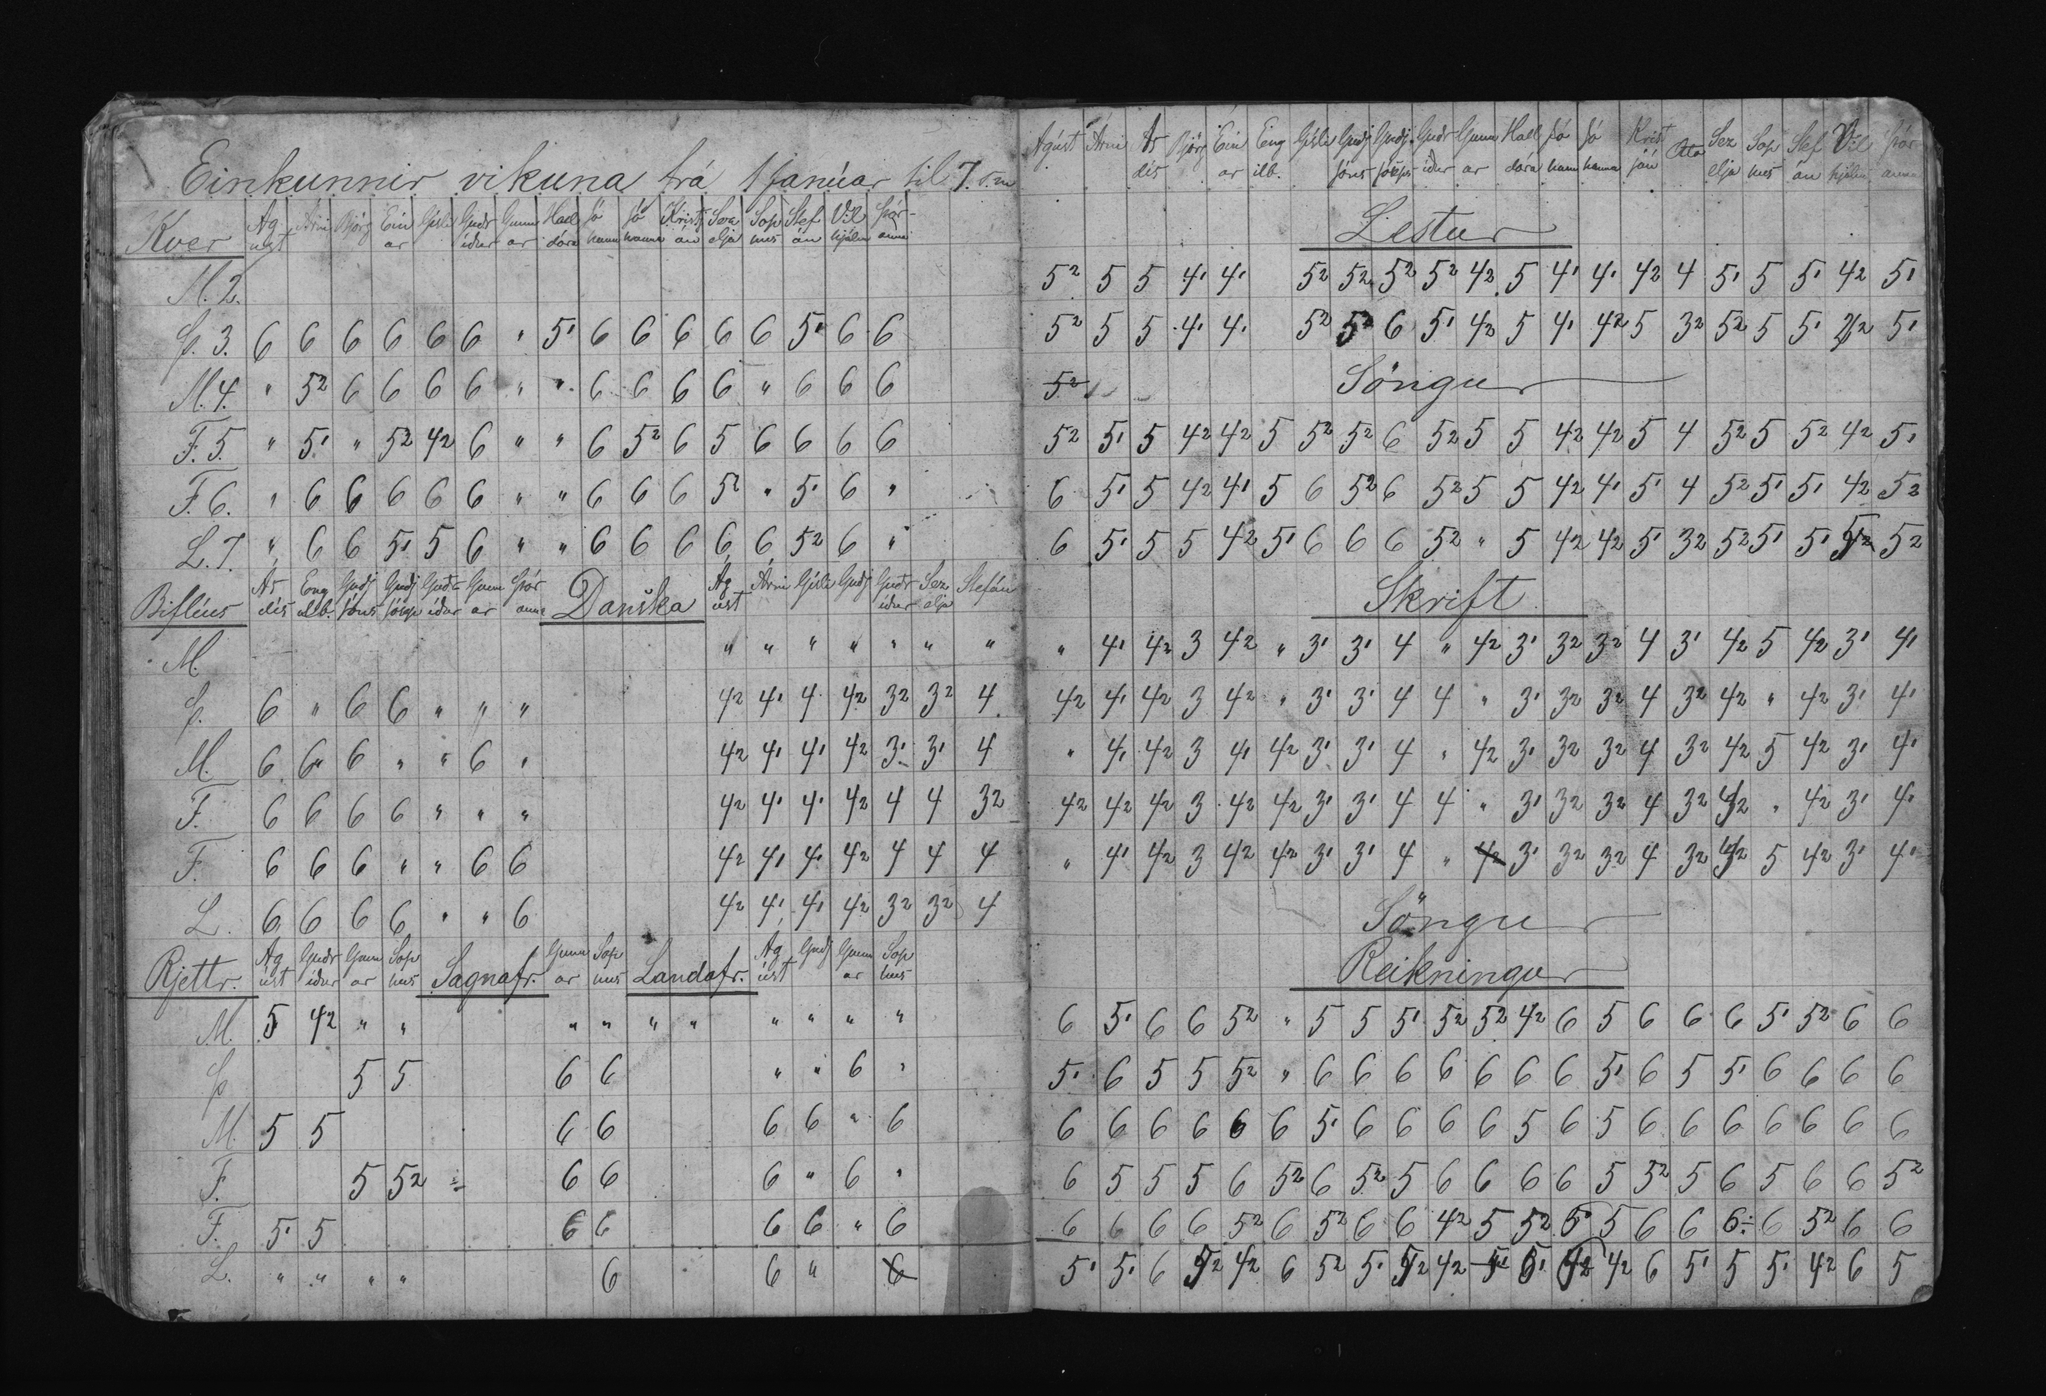 Einkunnir vikuna frá 1 Janúar til 7. s.m
Kver Ág úst Árni Björg Ein ar Gísli Guðr íður Gunn ar Hall dóra Jó hann Jó hanna Kristj án Sese elja Sop hus Stef án Vil hjálm Þór anna
M. 2.
Þ. 3. 6 6 6 6 6 6 " 5¹ 6 6 6 6 6 5¹ 6 6
M. 4. " 5² 6 6 6 6 " " 6 6 6 6 " 6 6 6
F. 5. " 5¹ " 5² 4² 6 " " 6 5² 6 5 6 6 6 6
F. 6. " 6 6 6 6 6 " " 6 6 6 5² " 5¹ 6 "
L. 7. " 6 6 5¹ 5 6 " " 6 6 6 6 6 5² 6 "
Biflíus Ás dís Eng ilb. Guðj Jóns Guðj Jóseps Guðr íður Gunn ar Þór anna Danska Ág úst Árni Gísli Guðj Guðr íður Sez elja Stefán
M. " " " " " " "
Þ. 6 " 6 6 " " " 4² 4¹ 4 4² 3² 3² 4
M. 6 6" 6 " " 6 " 4² 4¹ 4¹ 4² 3¹ 3¹ 4
F. 6 6 6 6 " " " 4² 4¹ 4¹ 4² 4 4 3²
F. 6 6 6 " " 6 6 4² 4¹ 4¹ 4² 4 4 4
L. 6 6 6 6 " " 6 4² 4¹ 4¹ 4² 3² 3² 4
Rjettr. Ág úst Guðr íður Gunn ar Sop hus Sagnafr. Gunn ar Sop hus Landafr. Ág úst Guðj Gunn ar Sop hus
M. 5 4² " " " " " " " " " "
Þ 5 5 6 6 " " 6 "
M. 5 5 6 6 6 6 " 6
F. 5 5² 6 6 6 " 6 "
F. 5¹ 5 6 6 6 6 " 6
L. " " " " 6 6 " 6
Ágúst Árni Ás dís Björg Ein ar Eng ilb. Gísli Guðj Jóns Guðj Jóseps Guðr íður Gunn ar Hall dóra Jó hann Jó hanna Krist ján Otto Sez elja Sop hus Stef án Vil hjálm Þór anna
Lestur
5² 5 5 4¹ 4¹ 5² 5² 5² 5² 4² 5 4¹ 4¹ 4² 4 5¹ 5 5¹ 4² 5¹
5² 5 5 4¹ 4¹ 5² 5² 6 5¹ 4² 5 4¹ 4² 5 3² 5² 5 5¹ 4² 5¹
5² Söngur
5² 5¹ 5 4² 4² 5 5² 5² 6 5² 5 5 4² 4² 5 4 5² 5 5² 4² 5¹
6 5¹ 5 4² 4¹ 5 6 5² 6 5² 5 5 4² 4¹ 5¹ 4 5² 5¹ 5¹ 4² 5²
6 5¹ 5 5 4² 5¹ 6 6 6 5² " 5 4² 4² 5¹ 3² 5² 5¹ 5¹ 5² 5²
Skrift
" 4¹ 4² 3 4² " 3¹ 3¹ 4 " 4² 3¹ 3² 3² 4 3¹ 4² 5 4² 3¹ 4¹
4² 4¹ 4² 3 4² " 3¹ 3¹ 4 4 " 3¹ 3² 3² 4 3² 4² " 4² 3¹ 4¹
" 4¹ 4² 3 4¹ 4² 3¹ 3¹ 4 " 4² 3¹ 3² 3² 4 3² 4² 5 4² 3¹ 4¹
4² 4² 4² 3 4² 4² 3¹ 3¹ 4 4 " 3¹ 3² 3² 4 3² 4² " 4² 3¹ 4¹
" 4¹ 4² 3 4² 4² 3¹ 3¹ 4 " 4² 3¹ 3² 3² 4 3² 4² 5 4² 3¹ 4¹
Söngur
Reikningur
6 5¹ 6 6 5² " 5 5 5¹ 5² 5² 4² 6 5 6 6 6 5¹ 5² 6 6
5¹ 6 5 5 5² " 6 6 6 6 6 6 6 5¹ 6 5 5¹ 6 6 6 6
6 6 6 6 6 6 5¹ 6 6 6 6 5 6 5 6 6 6 6 6 6 6
6 5 5 5 6 5² 6 5² 5 6 6 6 6 5 5² 5 6 5 6 6 5²
6 6 6 6 5² 6 5² 6 6 4² 5 5² 5 5 6 6 6 6 5² 6 6
5¹ 5¹ 6 5² 4² 6 5² 5¹ 5² 4² 5¹ 6¹ 4² 4² 6 5¹ 5 5¹ 4² 6 5